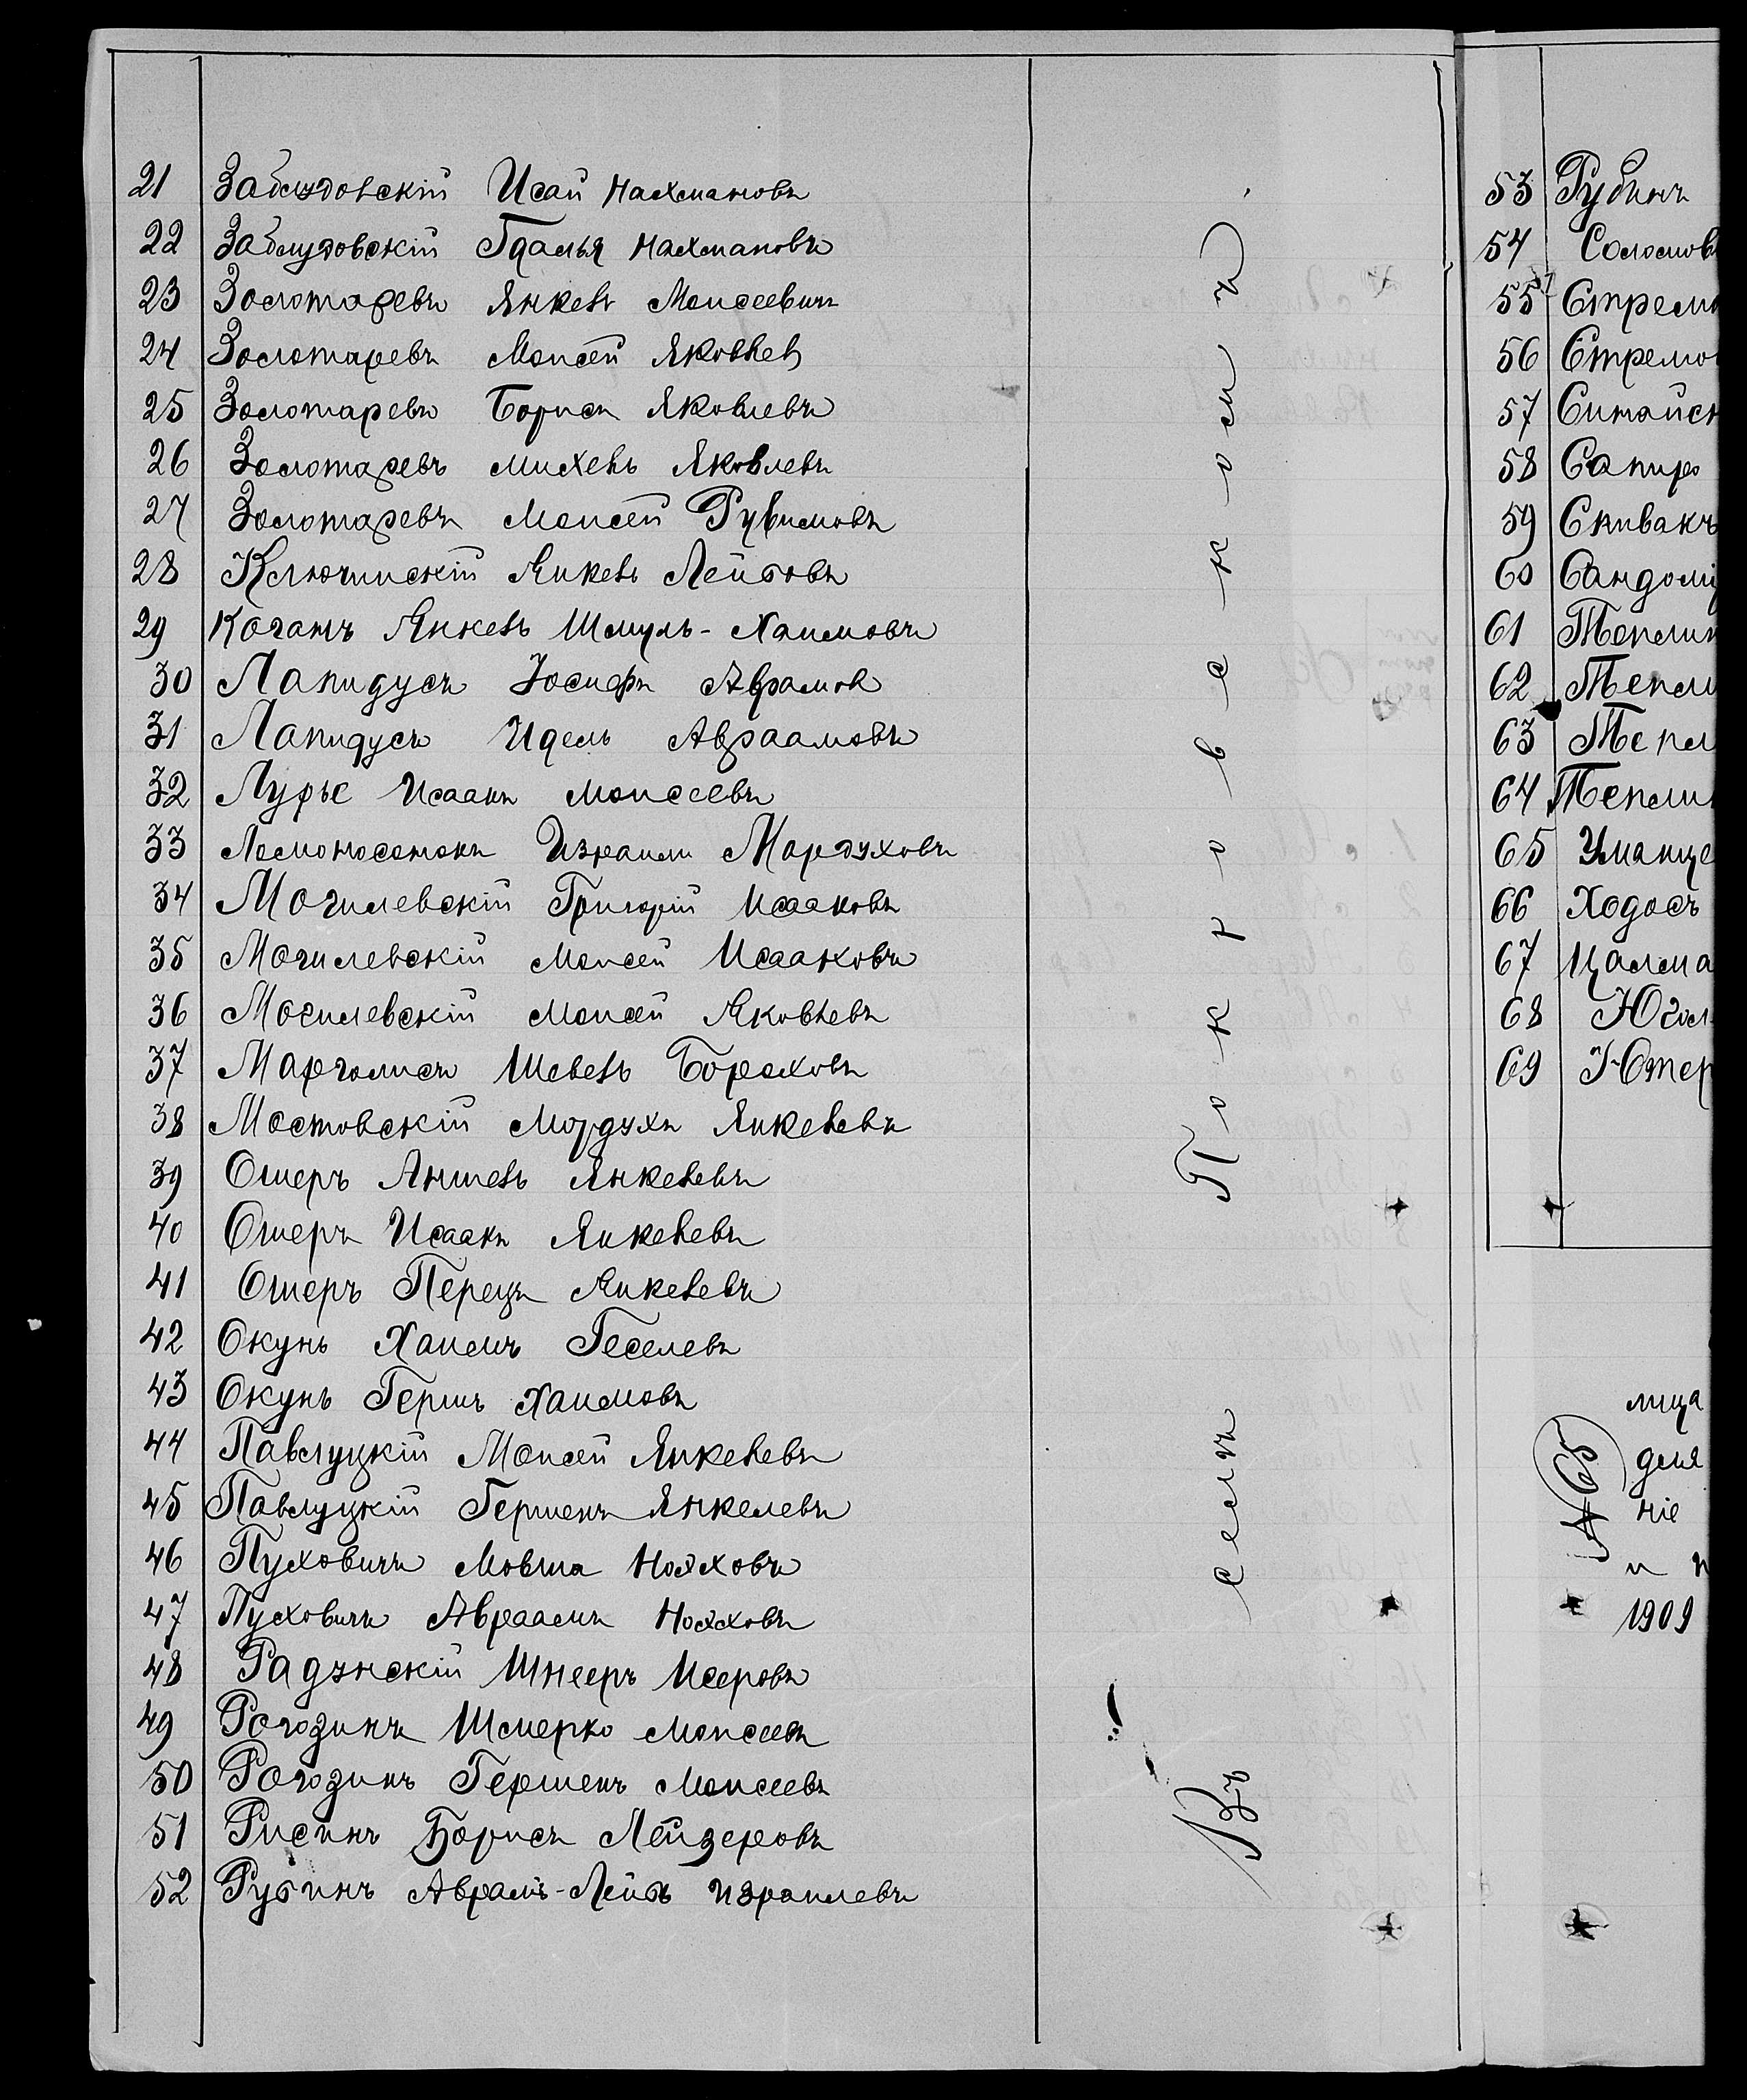 21 Заблудовскій Исай Нахмановъ
22 Заблудовскій Гдалья Нахмановъ
23 Золотаревъ Янкель Моисеевичъ
24 Золотаревъ Моисей Яковлев
25 Золотаревъ Борисъ Яковлевъ
26 Золотаревъ Михель Яковлевъ
27 Золотаревъ Моисей Рувимовъ
28 Ключинскій Янкель Лейбовъ
29 Коганъ Янкель Шмуль-Хаимовъ
30 Лапидусъ Іосифъ Абрамов
31 Лапидусъ Идель Авраамовъ
32 Лурье Исаакъ Моисеевъ
33 Израиль Мордуховъ
34 Могилевскій Григорій Исааковъ
35 Могилевскій Моисей Исааковъ
36 Могилевскій Моисей Яковлевъ
37 Марголисъ Шевель Бороховъ
38 Мостовскій Мордухъ Янкелевъ
39 Ошеръ Аншель Янкелевъ
40 Ошеръ Исаакъ Янкелевъ
41 Ошеръ Перецъ Янкелевъ
42 Окунь Хаимъ Геселевъ
43 Окунь Гершъ Хаимовъ
44 Павлуцкій Моисей Янкелевъ
45 Павлуцкій Гершенъ Янкелевъ
46 Пуховичъ Мовша Нояховъ
47 Пуховичъ Авраамъ Нояховъ
48 Радунскій Шнееръ Мееровъ
49 Рогозинъ Шмерко Моисеевъ
50 Рогозинъ Гершенъ Моисеевъ
51 Рисинъ Борисъ Лейзеровъ
52 Рубинъ Абрамъ-Лейбъ Израилевъ
Въ селѣ Покровскомъ.
53 Рубинъ
54 Соломов
55 Стрело
56 Стрело
57 Ситайск
58 Сапиро
59 Спивакъ
60 Сандомі
61 Теплиц
62 Тепли
63 Тепл
64 Теплиц
65 Уманце
66 Ходосъ
67 Цалма
68 Югол
69 Ютер
лица
для
ніе
и
1909